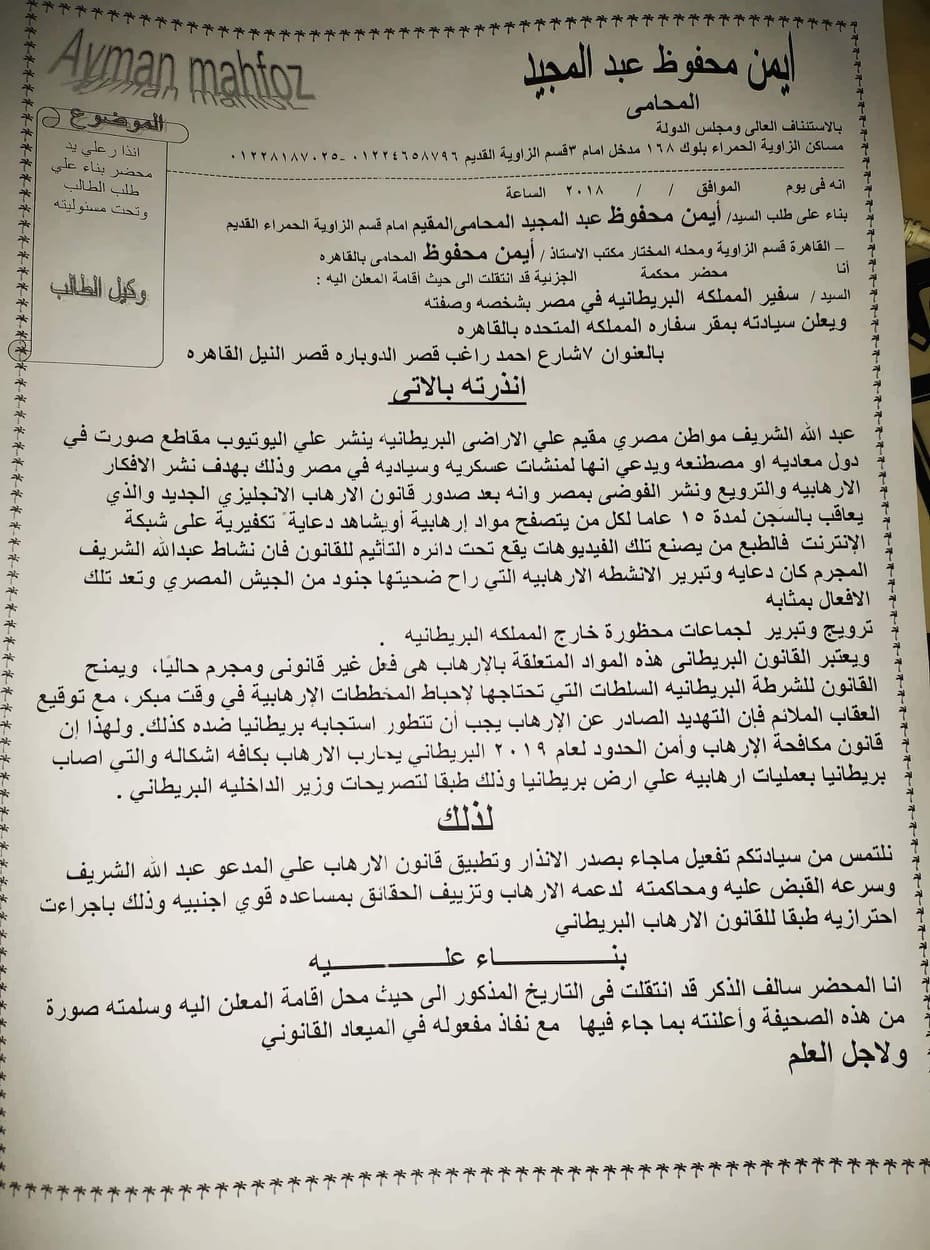 Ayman mahfoz
أيمن محفوظ عبد المجيد
المحامى
بالاستئناف العالى ومجلس الدولة
مساكن الزاوية الحمراء بلوك ١٦٨ مدخل امام ٣قسم الزاوية القديم ٠١٢٢٤٦٥٨٧٩٦ -٠١٢٢٨١٨٧٠٢٥
الموضوع
انذار علي يد
محضر بناء علي
طلب الطالب
وتحت مسئوليته
وكيل الطالب
انه فى يوم الموافق / / ٢٠١٨ الساعة
بناء على طلب السيد/ أيمن محفوظ عبد المجيد المحامى المقيم امام قسم الزاوية الحمراء القديم
– القاهرة قسم الزاوية ومحله المختار مكتب الاستاذ / أيمن محفوظ المحامى بالقاهره
أنا محضر محكمة الجزئية قد انتقلت الى حيث أقامة المعلن اليه :
السيد / سفير المملكه البريطانيه في مصر بشخصه وصفته
ويعلن سيادته بمقر سفاره المملكه المتحده بالقاهره
بالعنوان ٧شارع احمد راغب قصر الدوباره قصر النيل القاهره
انذرته بالاتى
عبد الله الشريف مواطن مصري مقيم علي الاراضى البريطانيه ينشر علي اليوتيوب مقاطع صورت في
دول معاديه او مصطنعه ويدعي انها لمنشات عسكريه وسياديه في مصر وذلك بهدف نشر الافكار
الارهابيه والترويع ونشر الفوضى بمصر وانه بعد صدور قانون الارهاب الانجليزي الجديد والذي
يعاقب بالسَجن لمدة ١٥ عاما لكل من يتصفح مواد إرهابية أويشاهد دعاية ً تكفيرية على شبكة
الإنترنت فالطبع من يصنع تلك الفيديوهات يقع تحت دائره التأثيم للقانون فان نشاط عبدالله الشريف
المجرم كان دعايه وتبرير الانشطه الارهابيه التي راح ضحيتها جنود من الجيش المصري وتعد تلك
الافعال بمثابه
ترويج وتبرير لجماعات محظورة خارج المملكه البريطانيه .
ويعتبر القانون البريطانى هذه المواد المتعلقة بالإرهاب هى فعل غير قانونى ومجرم حاليًا، ويمنح
القانون للشرطة البريطانيه السلطات التي تحتاجها لإحباط المخططات الإرهابية في وقت مبكر، مع توقيع
العقاب الملائم فإن التهديد الصادر عن الإرهاب يجب أن تتطور استجابه بريطانيا ضده كذلك. ولهذا إن
قانون مكافحة الإرهاب وأمن الحدود لعام ٢٠١٩ البريطاني يحارب الارهاب بكافه اشكاله والتي اصاب
بريطانيا بعمليات ارهابيه علي ارض بريطانيا وذلك طبقا لتصريحات وزير الداخليه البريطاني .
لذلك
نلتمس من سيادتكم تفعيل ماجاء بصدر الانذار وتطبيق قانون الارهاب علي المدعو عبد الله الشريف
وسرعه القبض عليه ومحاكمته لدعمه الارهاب وتزييف الحقائق بمساعده قوي اجنبيه وذلك باجراءت
احترازيه طبقا للقانون الارهاب البريطاني
بنــــــــــاء علــــــــيه
انا المحضر سالف الذكر قد انتقلت فى التاريخ المذكور الى حيث محل اقامة المعلن اليه وسلمته صورة
من هذه الصحيفة وأعلنته بما جاء فيها مع نفاذ مفعوله في الميعاد القانوني
ولاجل العلم